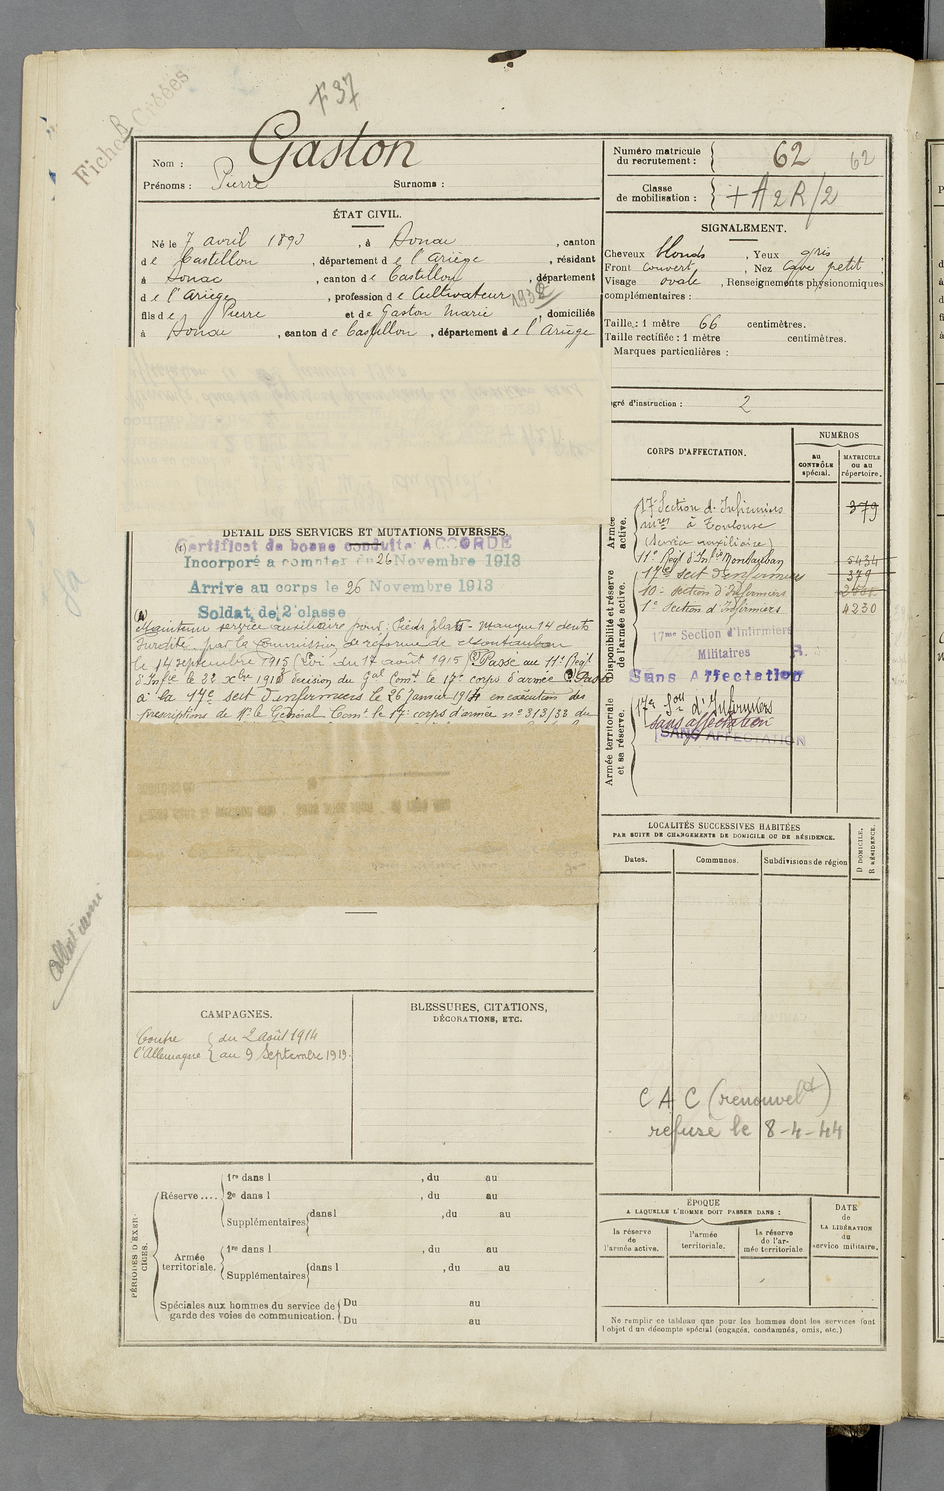 Fiches Créées
F 37
Nom : Gaston
Prénoms : Pierre Surnoms :
ÉTAT CIVIL.
Né le 7 avril 1893, à Donac, canton
de Castillon, département de l'Ariège, résidant
à Donac, canton de Castillon, département
de l'Ariège, profession de Cultivateur 1932
fils de Pierre et de Gaston Marie, domiciliés
à Donac, canton de Castillon, département de l'Ariège
DÉTAIL DES SERVICES ET MUTATIONS DIVERSES.
(1) Certificat de bonne conduite ACCORDÉ
Incorporé à compter du 26 Novembre 1913
Arrivé au corps le 26 Novembre 1913
Soldat de 2e classe
(A)
Maintenu service auxiliaire pour : Pieds plats - manque 14 dents
surdité par la Commission de réforme de Montauban
le 14 septembre 1915 (Loi du 17 août 1915) Passé au 11e Régt
d'Infie le 22 xbre 1916 décision du Gal Comt le 17e corps d'armée Passé
à la 17e sect d'infirmiers le 26 janvier 1917 en exécution des
prescriptions de Mr le Général Comt le 17e corps d'armée n° 313/33 du
CAMPAGNES.
Contre l'Allemagne { du 2 août 1914
au 9 Septembre 1919.
BLESSURES, CITATIONS,
DÉCORATIONS, ETC.
PÉRIODES D'EXERCICES.
Réserve....
1re dans l , du au
2e dans l , du au
Supplémentaires dans l , du au
Armée territoriale.
1re dans l , du au
Supplémentaires dans l , du au
Spéciales aux hommes du service de
garde des voies de communication.
Du au
Du au
Numéro matricule
du recrutement : 62 62
Classe
de mobilisation : + A 2 R/2
SIGNALEMENT.
Cheveux blonds, Yeux gris
Front couvert, Nez cave petit,
Visage ovale, Renseignements physionomiques
complémentaires :
Taille : 1 mètre 66 centimètres.
Taille rectifiée : 1 mètre centimètres.
Marques particulières :
egré d'instruction : 2
CORPS D'AFFECTATION.
NUMÉROS
au
CONTRÔLE
spécial.
MATRICULE
ou au
répertoire.
Armée active.
17e Section d'Infirmiers 379
mres à Toulouse
(Service auxiliaire)
11e Régt d'Infie Montauban 5434
Disponibilité et réserve de l'armée active.
17e sect d'infirmiers 379
10e Section d'Infirmiers
1e Section d'Infirmiers 4230
17me Section d'Infirmiers
Militaires R.
Sans Affectation
Armée territoriale et sa réserve.
17e Son d'Infirmiers
sans affectation
SANS AFFECTATION
LOCALITÉS SUCCESSIVES HABITÉES
PAR SUITE DE CHANGEMENTS DE DOMICILE OU DE RÉSIDENCE.
Dates.
Communes.
Subdivisions de région
D DOMICILE,
R RÉSIDENCE.
C A C (renouvelt)
refusé le 8-4-44
ÉPOQUE
A LAQUELLE L'HOMME DOIT PASSER DANS :
la réserve
de
l'armée active.
l'armée
territoriale.
la réserve
de l'ar-
mée territoriale
DATE
de
LA LIBÉRATION
du
service militaire.
Ne remplir ce tableau que pour les hommes dont les services font
l'objet d'un décompte spécial (engagés, condamnés, omis, etc.)